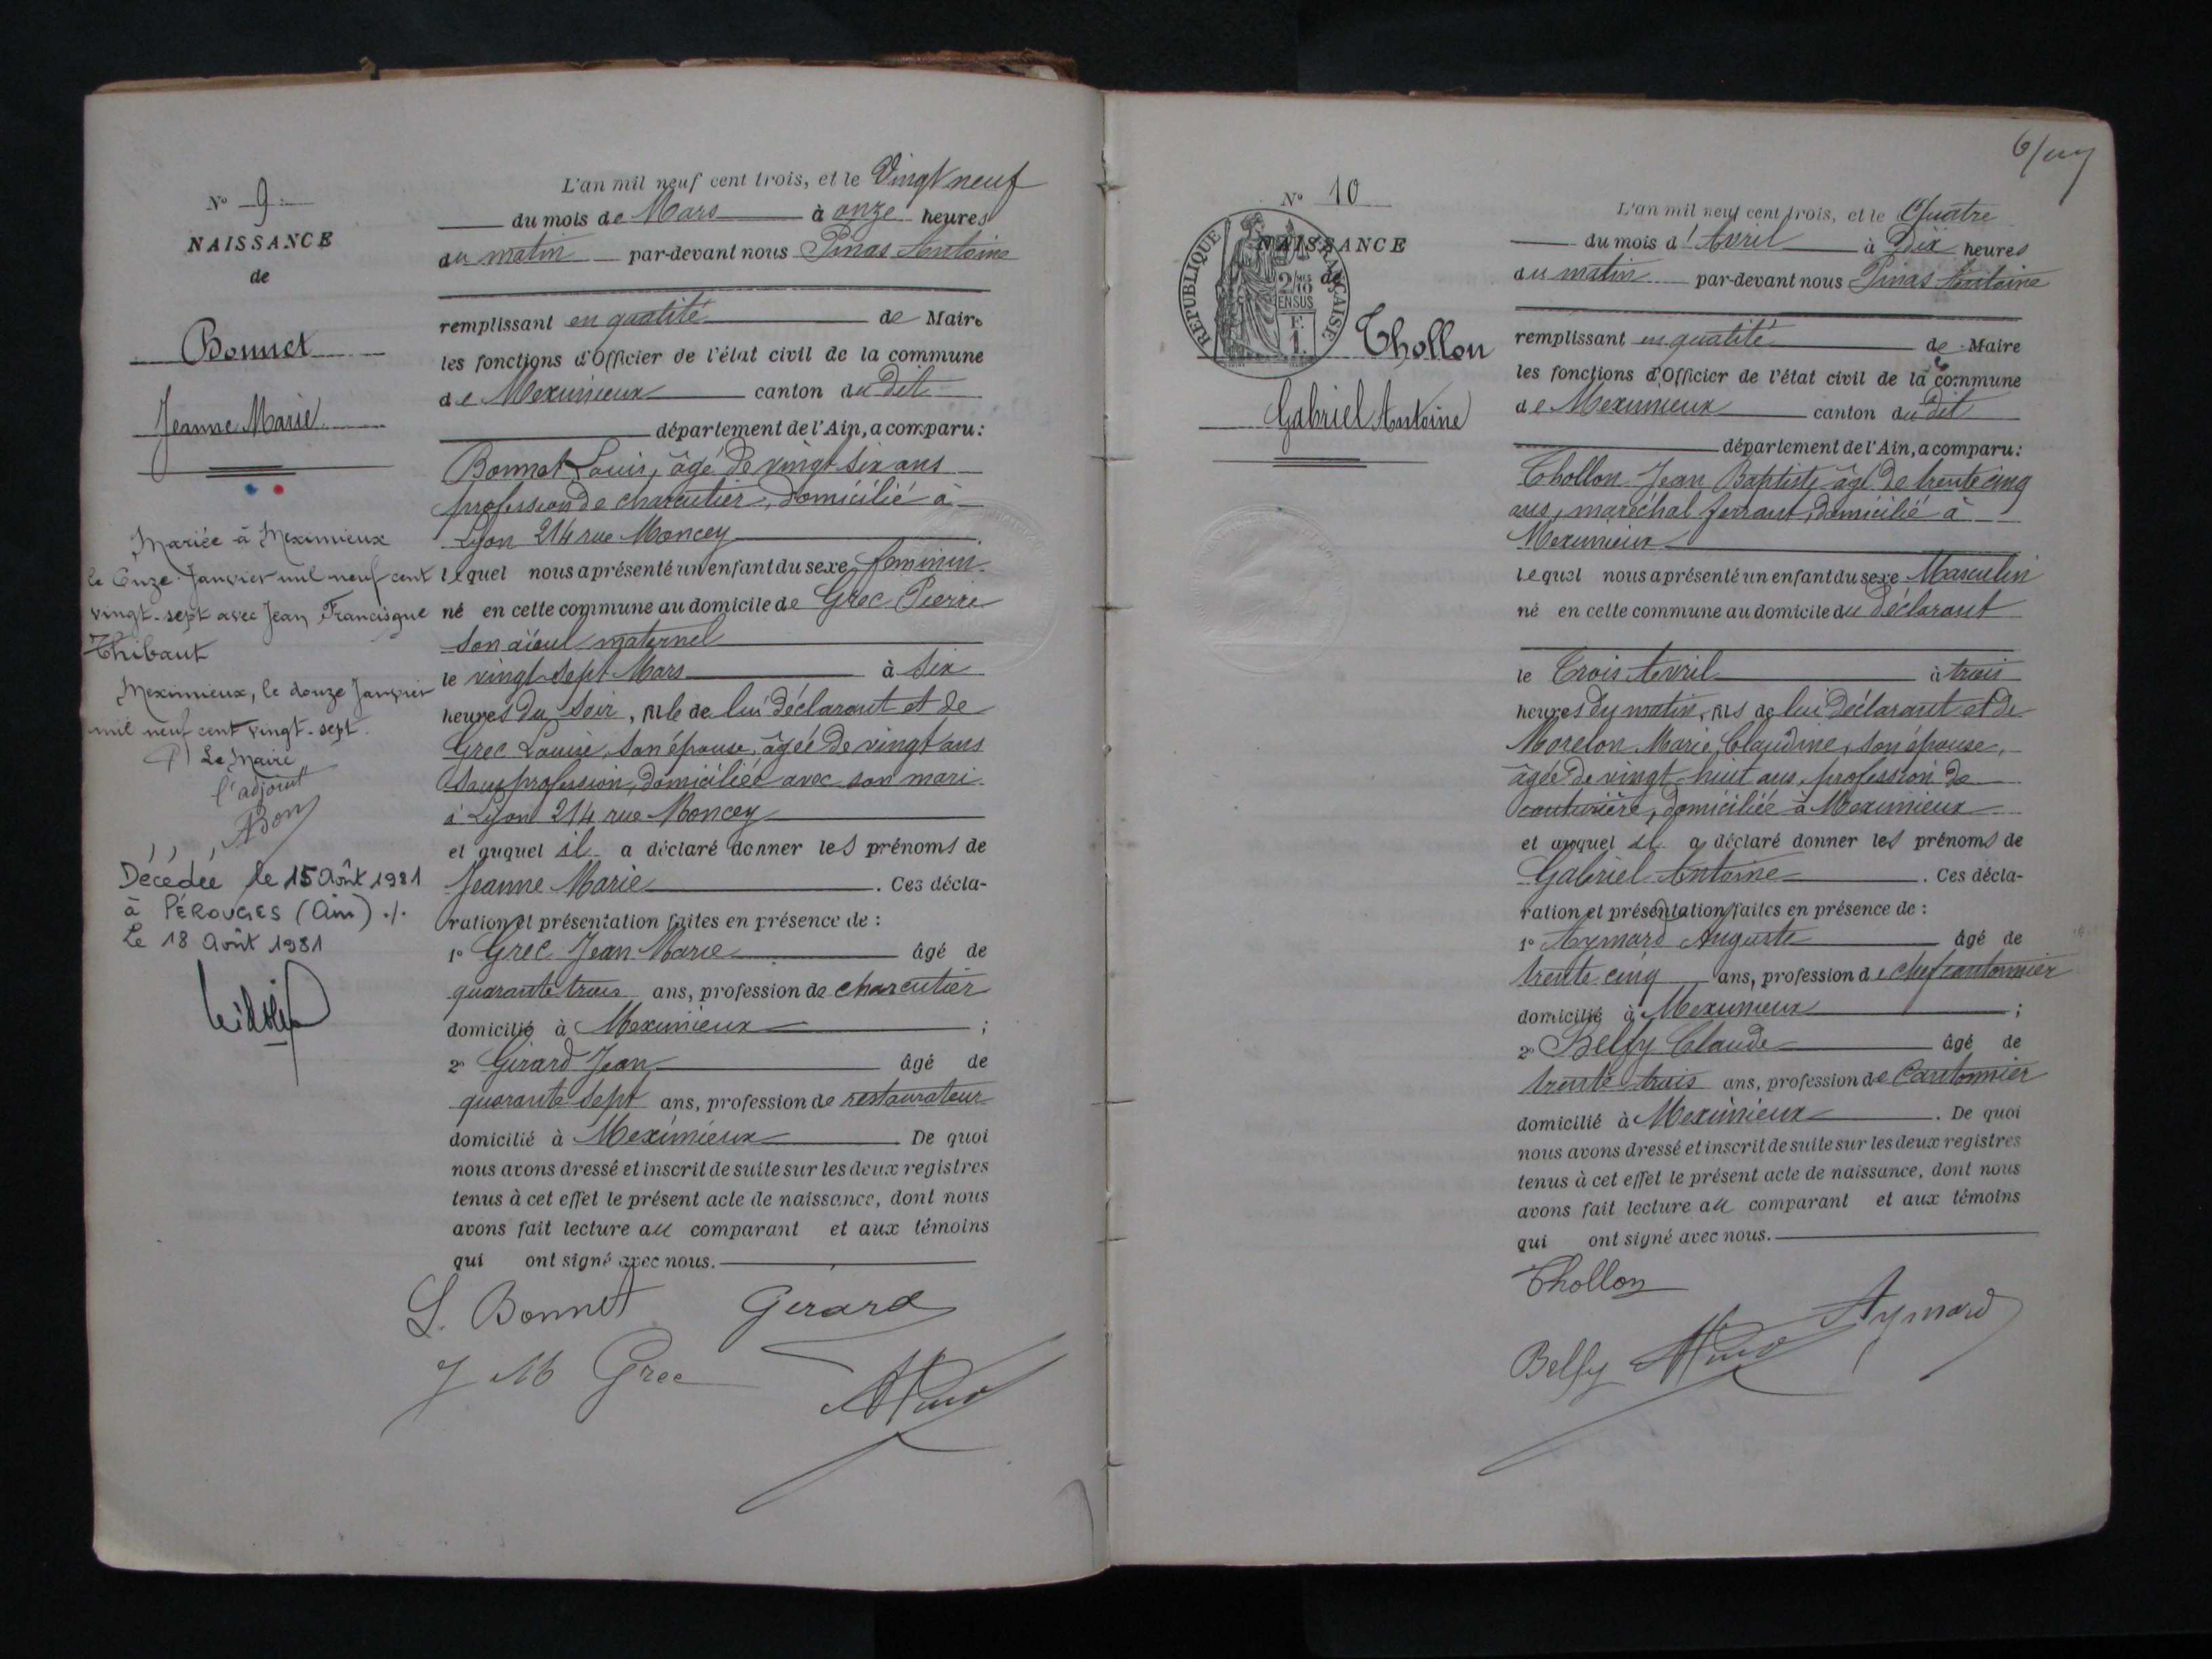 N° 9
NAISSANCE
de
Bonnet
Jeanne Marie
Mariée à Meximieux
le Onze Janvier mil neuf cent
vingt-sept avec Jean Francisque
Thibaut
Meximieux, le douze Janvier
mil neuf cent vingt-sept.
Le Maire
l'adjoint
Décédée le 15 Août 1981
à PÉROUGES (Ain) ./.
Le 18 Août 1981
L'an mil neuf cent trois, et le Vingt neuf
du mois de Mars à onze heures
du matin par-devant nous Pinas Antoine
remplissant en qualité de Maire
les fonctions d'Officier de l'état civil de la commune
de Meximieux canton du dit
département de l'Ain, a comparu:
Bonnet Louis, âgé de vingt six ans
profession de charcutier, domicilié à
Lyon 214 rue Moncey
lequel nous a présenté un enfant du sexe féminin
né en cette commune au domicile de Grec Pierre
son aïeul maternel
le vingt sept Mars à six
heures du soir, fille de lui déclarant et de
Grec Louise, son épouse, âgée de vingt ans
sans profession, domiciliée avec son mari
à Lyon 214 rue Moncey
et auquel il a déclaré donner les prénoms de
Jeanne Marie. Ces décla-
ration et présentation faites en présence de :
1° Grec Jean Marie âgé de
quarante trois ans, profession de charcutier
domicilié à Meximieux ;
2° Girard Jean âgé de
quarante sept ans, profession de restaurateur
domicilié à Meximieux. De quoi
nous avons dressé et inscrit de suite sur les deux registres
tenus à cet effet le présent acte de naissance, dont nous
avons fait lecture au comparant et aux témoins
qui ont signé avec nous.
L. Bonnet Gerard
J M Grec
6/
N° 10
NAISSANCE
de
REPUBLIQUE FRANÇAISE
2/10
EN SUS
Thollon
Gabriel Antoine
L'an mil neuf cent trois, et le Quatre
du mois d'Avril à Dix heures
du matin par-devant nous Pinas Antoine
remplissant en qualité de Maire
les fonctions d'Officier de l'état civil de la commune
de Meximieux canton du dit
département de l'Ain, a comparu:
Thollon Jean Baptiste âgé de trente cinq
ans, maréchal ferrant, domicilié à
Meximieux
lequel nous a présenté un enfant du sexe Masculin
né en cette commune au domicile du déclarant
le Trois Avril à trois
heures du matin, fils de lui déclarant et de
Morelon Marie Claudine, son épouse,
âgée de vingt huit ans, profession de
couturière, domiciliée à Meximieux
et auquel il a déclaré donner les prénoms de
Gabriel Antoine. Ces décla-
ration et présentation faites en présence de :
1° Aymard Auguste âgé de
trente cinq ans, profession de chef cantonnier
domicilié à Meximieux ;
2° Belfy Claude âgé de
trente trois ans, profession de Cantonnier
domicilié à Meximieux. De quoi
nous avons dressé et inscrit de suite sur les deux registres
tenus à cet effet le présent acte de naissance, dont nous
avons fait lecture au comparant et aux témoins
qui ont signé avec nous.
Thollon
Aymard
Belfy